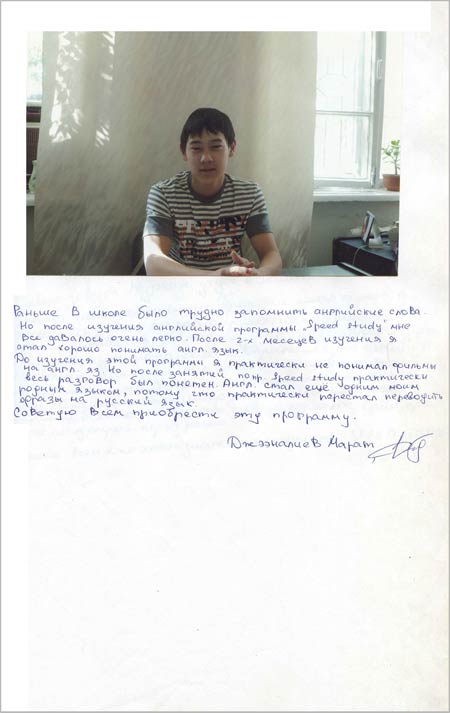 Раньше в школе было трудно запомнить английские слова.
Но после изучения английской программы „Speed study" мне
все давалось очень легко. После 2-х месецев изучения я
стал хорошо понимать англ. язык.
До изучения этой программы я практически не понимал фильмы
на англ. яз. Но после занятий по пр. Speed study практически
весь разговор был понятен. Англ. стал ещё одним моим
родным языком, потому что практически перестал переводить
образы на русский язык.
Советую всем приобрести эту программу.
Джээналиев Марат